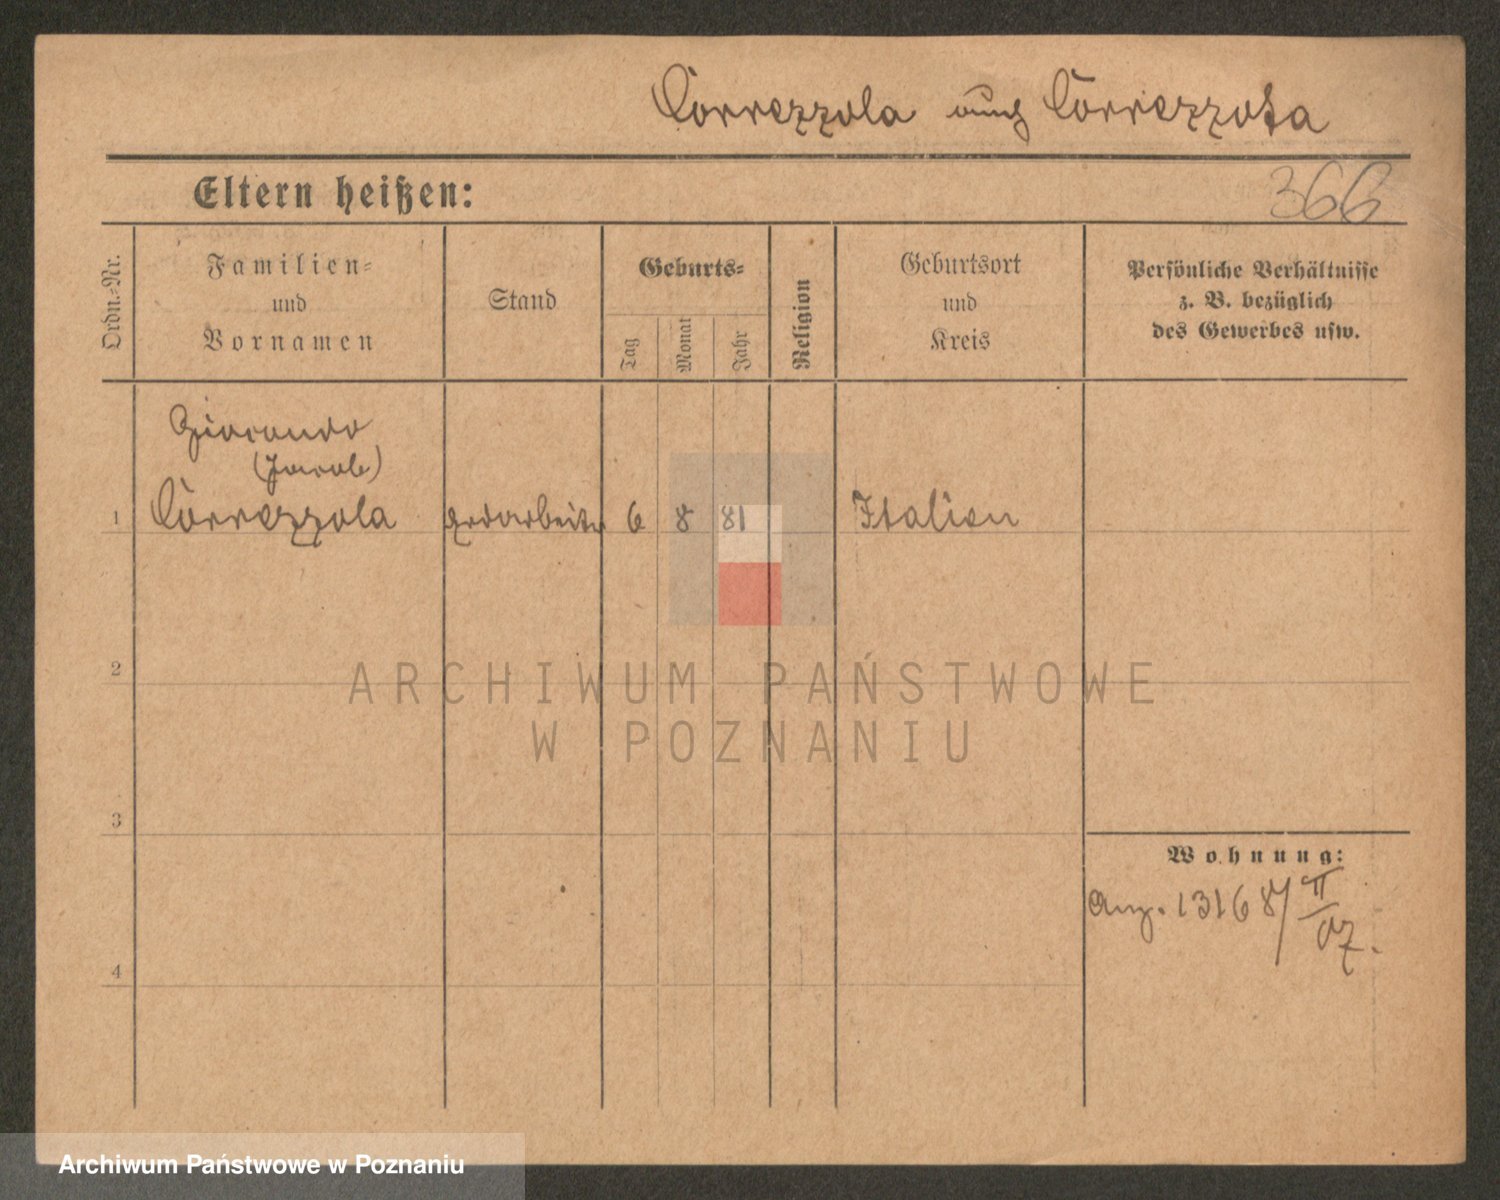 Correzzola auch Correzzota
Eltern heißen:
366
Ordn.=Nr.
Familien=
und
Vornamen
Stand
Geburts=
Tag
Monat
Jahr
Religion
Geburtsort
und
Kreis
Persönliche Verhältnisse
z. B. bezüglich
des Gewerbes usw.
Giocondo
(Jacob)
1 Correzzola Erdarbeiter 6 8 81 Italien
2
3
4
Wohnung:
Anz. 13168/II
07.
ARCHIWUM PAŃSTWOWE
W POZNANIU
Archiwum Państwowe w Poznaniu